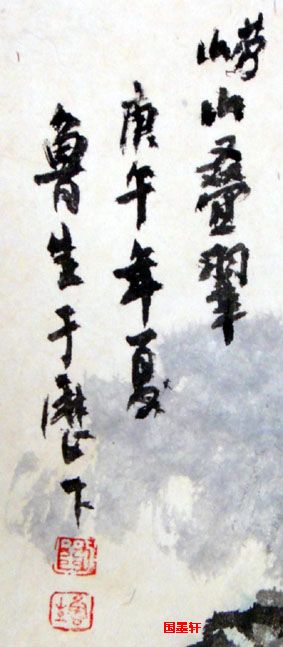 崂山叠翠
庚午年夏
鲁生于历下
国墨轩